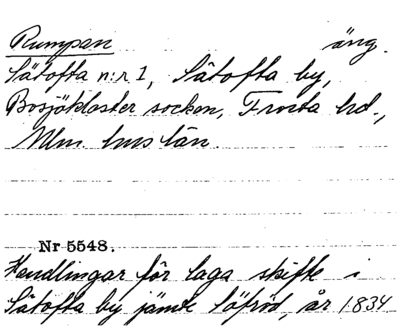 Rumpan äng.
Sätofta n:r 1, Sätofta by,
Bosjökloster socken, Frosta hd.,
Mlm hus län.
Nr 5548.
Handlingar för laga skifte i
Sätofta by jämte Löfröd, år 1834